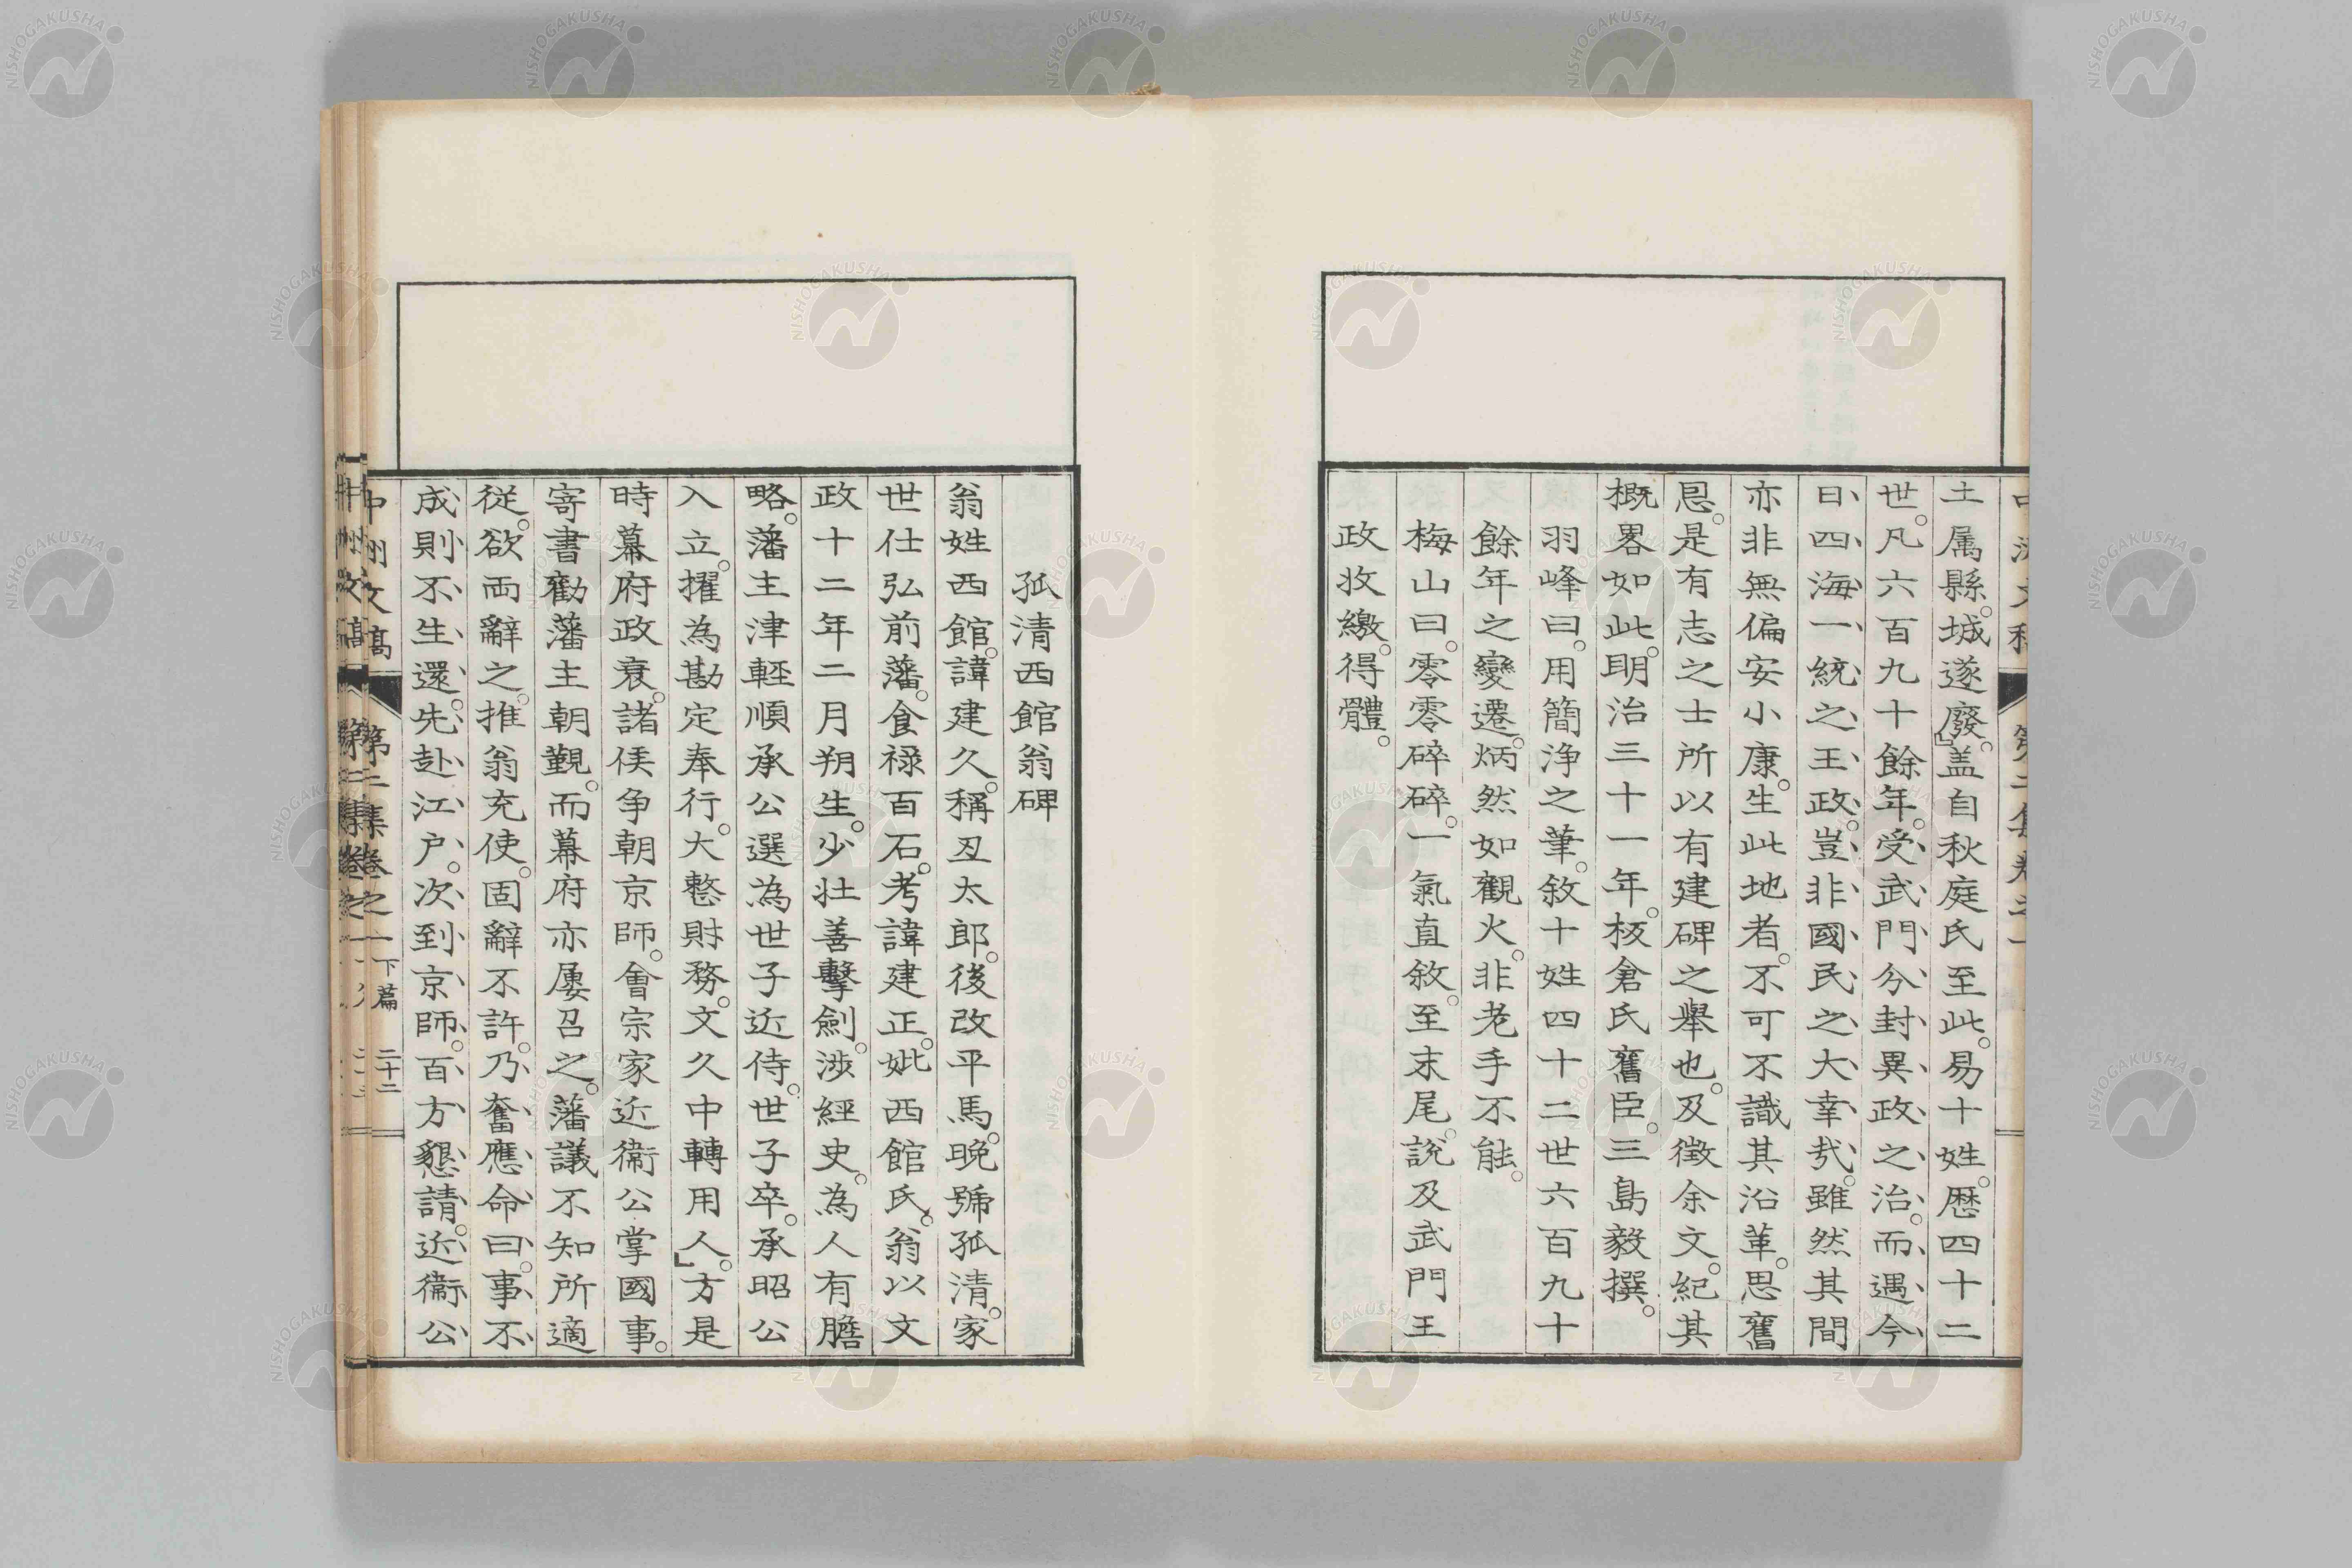 土属縣。城遂廢。』盖自秋庭氏至此。易十姓。歴四十二
世。凡六百九十餘年。受武門分封異政之治。而遇今
日四海一統之王政。豈非國民之大幸㢤。雖然其間
亦非無偏安小康。生此地者。不可不識其沿革。思舊
恩。是有志之士所以有建碑之舉也。及徴余文。紀其
概畧如此。明治三十一年。板倉氏舊臣。三島毅撰。
羽峰曰。用簡浄之筆。敘十姓四十二世六百九十
餘年之變遷。炳然如觀火。非老手不能。
梅山曰。零零碎碎。一氣直敘。至末尾。説及武門王
政收繳。得體。
孤清西館翁碑
翁姓西館。諱建久。稱丑太郎。後改平馬。晩號孤清。家
世仕弘前藩。食禄百石。考諱建正。妣西館氏。翁以文
政十二年二月朔生。少壮善擊劍。渉經史。為人有膽
略。藩主津軽順承公選為世子近侍。世子卒。承昭公
入立。擢為勘定奉行。大整財務。文久中轉用人。』方是
時幕府政衰。諸侯争朝京師。會宗家近衞公掌國事。
寄書勸藩主朝覲。而幕府亦屡召之。藩議不知所適
從。欲両辭之。推翁充使。固辭不許。乃奮應命曰。事不
成則不生還。先赴江户。次到京師。百方懇請。近衞公
中洲文稿 第二集卷之一下篇 二十二